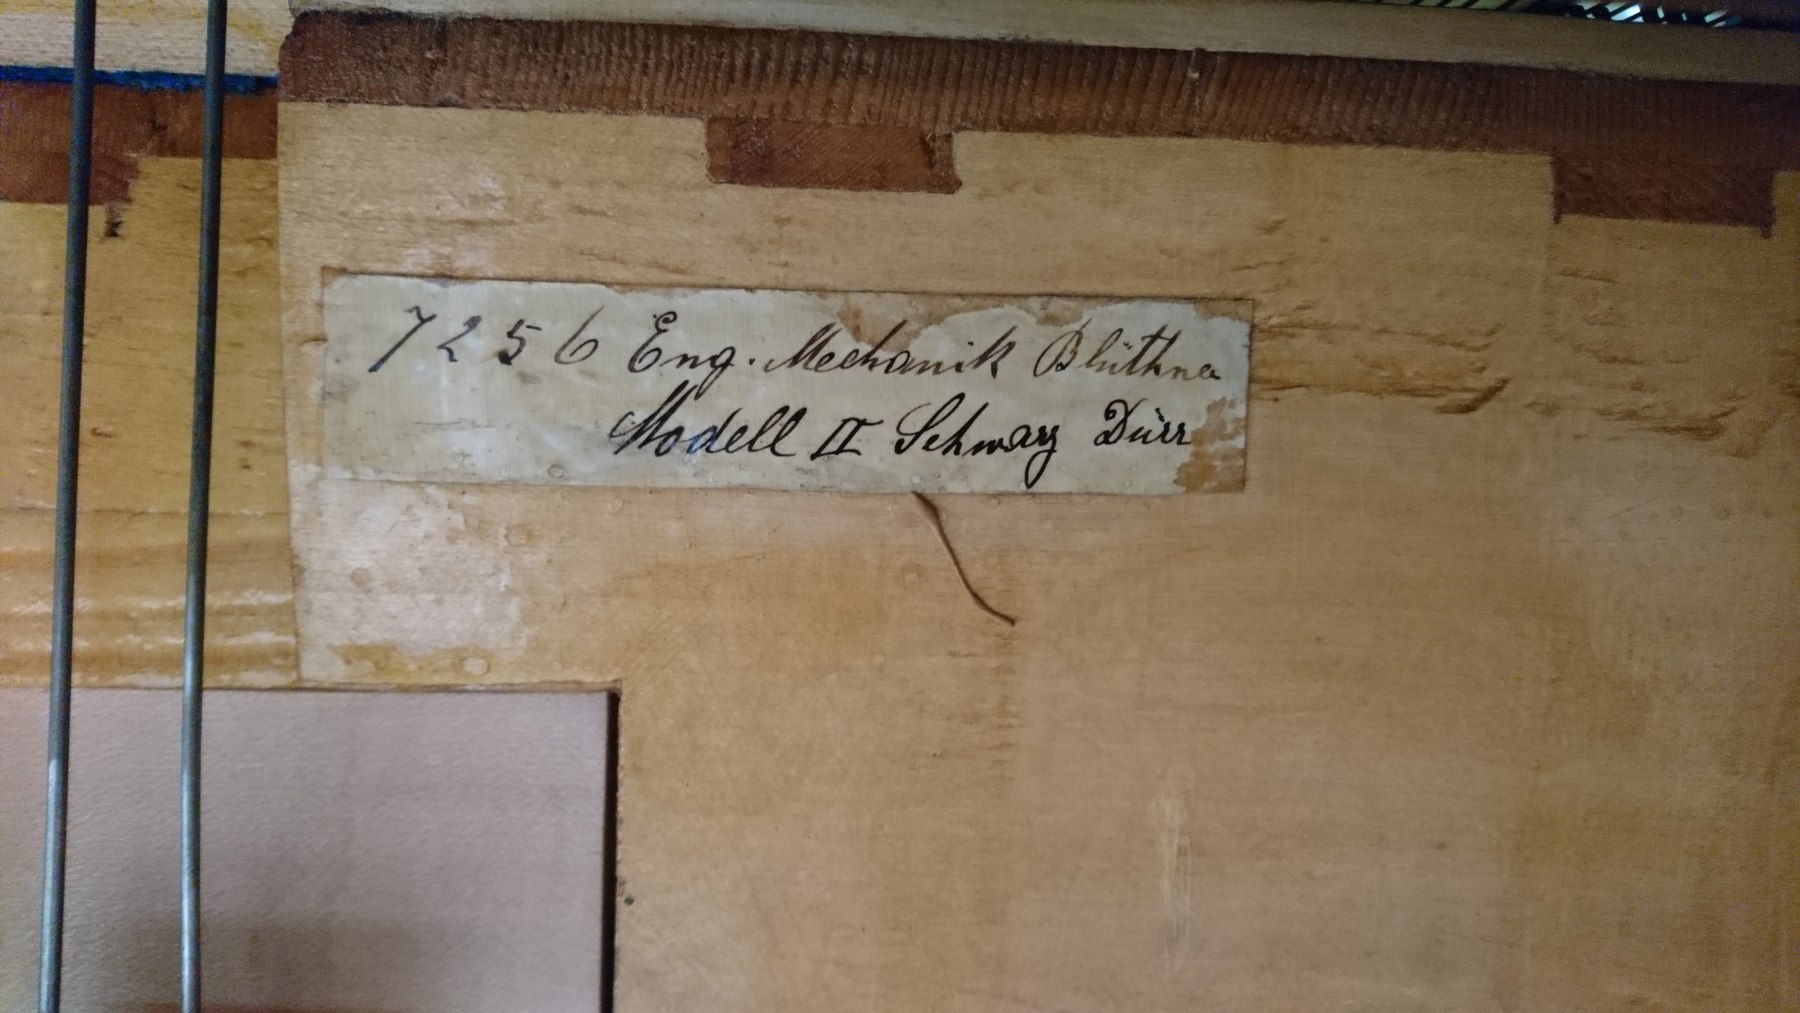 7256 Eng. Mechanik Blüthner
Modell II Schwarz Dürr